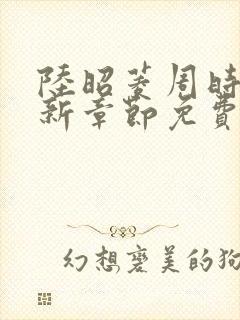 陸昭菱周時
新章節免費
幻想褒美的狗